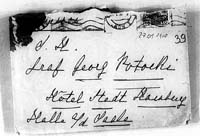 27.01.1910
39
S. H.
Graf Georg Potocki
Hotel Stadt Hamburg
Halle a/d Saale